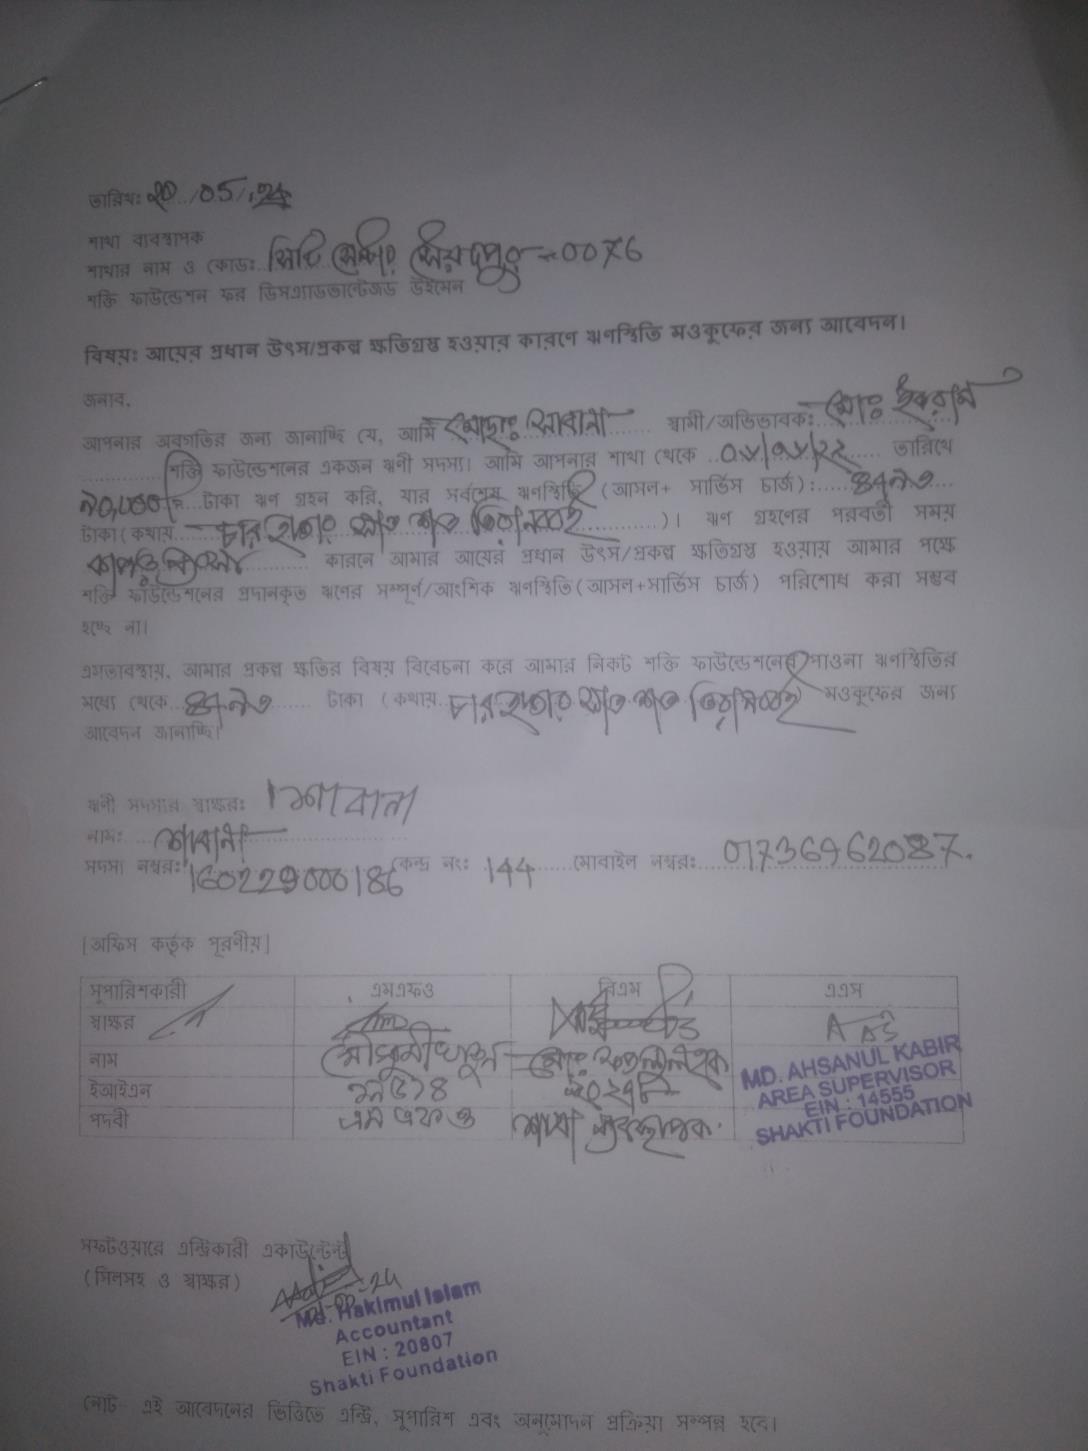 তারিখ: ২০/০5/
শাখা ব্যবস্থাপক
শাখার নাম ও কোড: সিটি সেন্টার সৈয়দপুর-০০76
শক্তি ফাউন্ডেশন ফর ডিসএ্যাডভান্টেজড উইমেন
বিষয়: আয়ের প্রধান উৎস/প্রকল্প ক্ষতিগ্রস্ত হওয়ার কারণে ঋণস্থিতি মওকুফের জন্য আবেদন।
জনাব,
আপনার অবগতির জন্য জানাচ্ছি যে, আমি মোছাঃ সাবানা স্বামী/অভিভাবক: মোঃ
শক্তি ফাউন্ডেশনের একজন ঋণী সদস্য। আমি আপনার শাখা থেকে তারিখে
টাকা ঋণ গ্রহন করি, যার সর্বশেষ ঋণস্থিতি (আসল+ সার্ভিস চার্জ): ৪৭৯৩
টাকা (কথায় চার হাজার সাত শত তিরানব্বই )। ঋণ গ্রহণের পরবর্তী সময়
কারনে আমার আয়ের প্রধান উৎস/প্রকল্প ক্ষতিগ্রস্ত হওয়ায় আমার পক্ষে
শক্তি ফাউন্ডেশনের প্রদানকৃত ঋণের সম্পূর্ণ/আংশিক ঋণস্থিতি (আসল+সার্ভিস চার্জ) পরিশোধ করা সম্ভব
হচ্ছে না।
এমতাবস্থায়, আমার প্রকল্প ক্ষতির বিষয় বিবেচনা করে আমার নিকট শক্তি ফাউন্ডেশনের পাওনা ঋণস্থিতির
মধ্যে থেকে ৪৭৯৩ টাকা (কথায় চার হাজার সাত শত তিরানব্বই) মওকুফের জন্য
আবেদন জানাচ্ছি।
ঋণী সদস্যর স্বাক্ষর: শাবানা
নাম: শাবানা
সদস্য নম্বর: 160229000186 কেন্দ্র নং: 144 মোবাইল নম্বর: 01736962087.
[অফিস কর্তৃক পূরণীয়]
সুপারিশকারী এমএফও বিএম এএস
স্বাক্ষর
নাম মৌসুমী খাতুন মোঃ
ইআইএন ১৯৫১৪
পদবী এম এফ ও শাখা ব্যবস্থাপক
MD. AHSANUL KABIR
AREA SUPERVISOR
EIN : 14555
SHAKTI FOUNDATION
সফটওয়ারে এন্ট্রিকারী একাউন্টেন্ট
(সিলসহ ও স্বাক্ষর)
Md. Hakimul Islam
Accountant
EIN : 20807
Shakti Foundation
নোট- এই আবেদনের ভিত্তিতে এন্ট্রি, সুপারিশ এবং অনুমোদন প্রক্রিয়া সম্পন্ন হবে।